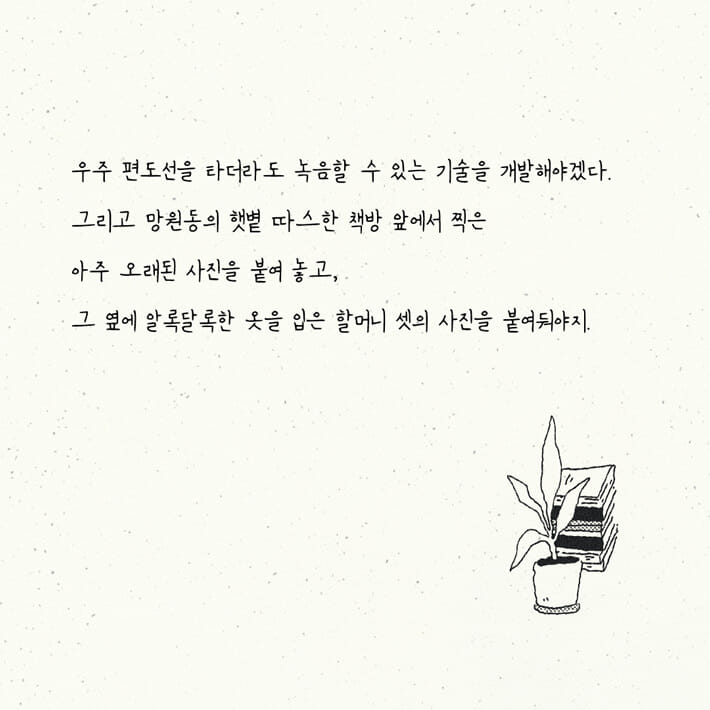 우주 편도선을 타더라도 녹음할 수 있는 기술을 개발해야겠다.
그리고 망원동의 햇볕 따스한 책방 앞에서 찍은
아주 오래된 사진을 붙여 놓고,
그 옆에 알록달록한 옷을 입은 할머니 셋의 사진을 붙여둬야지.